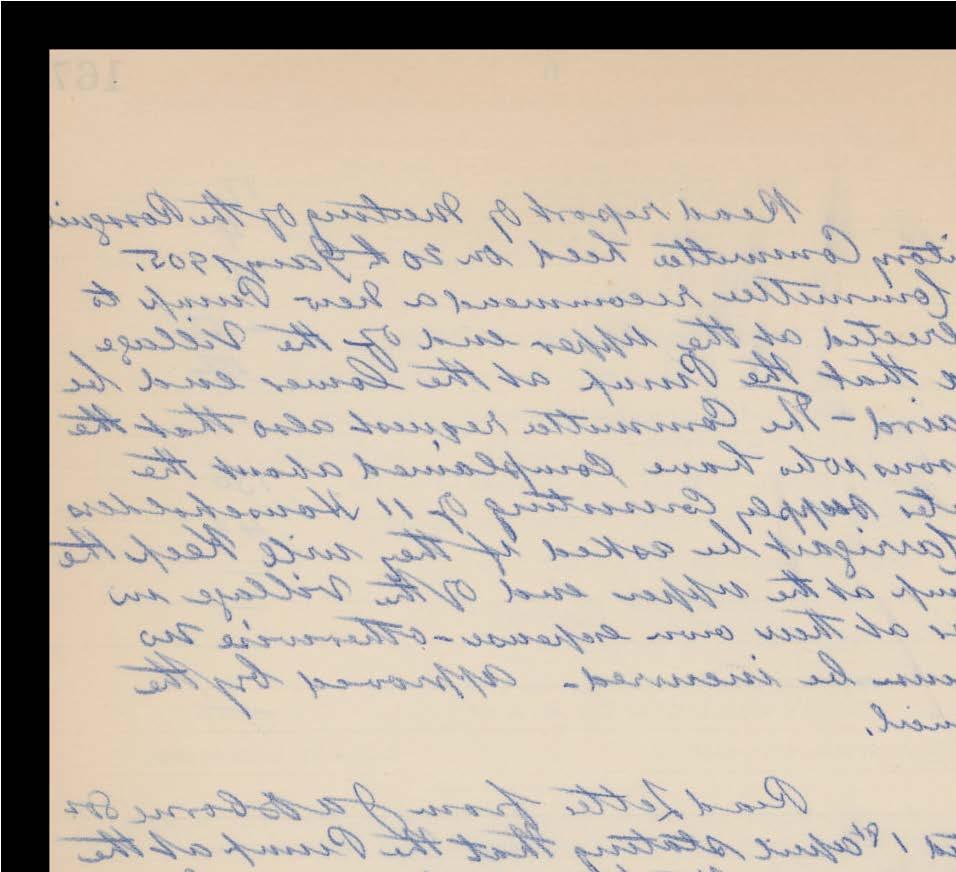 167
Read report of Meeting of the Resqui
itory Committee held on 20th Jany 1905.
Committee recommend a new Pump to
erected at the upper end of the Village
that the Pump at the lower end be
aired - The Committee request also that the
sons who have complained about the
ter supply consisting of 11 Householders
Carrigart be asked if they will keep the
mp at the upper end of the Village in
at their own expense - otherwise no
be incurred - approved by the
ncil.
Read Letter from Jas Osborne Sr
1st April stating that the Pump at the